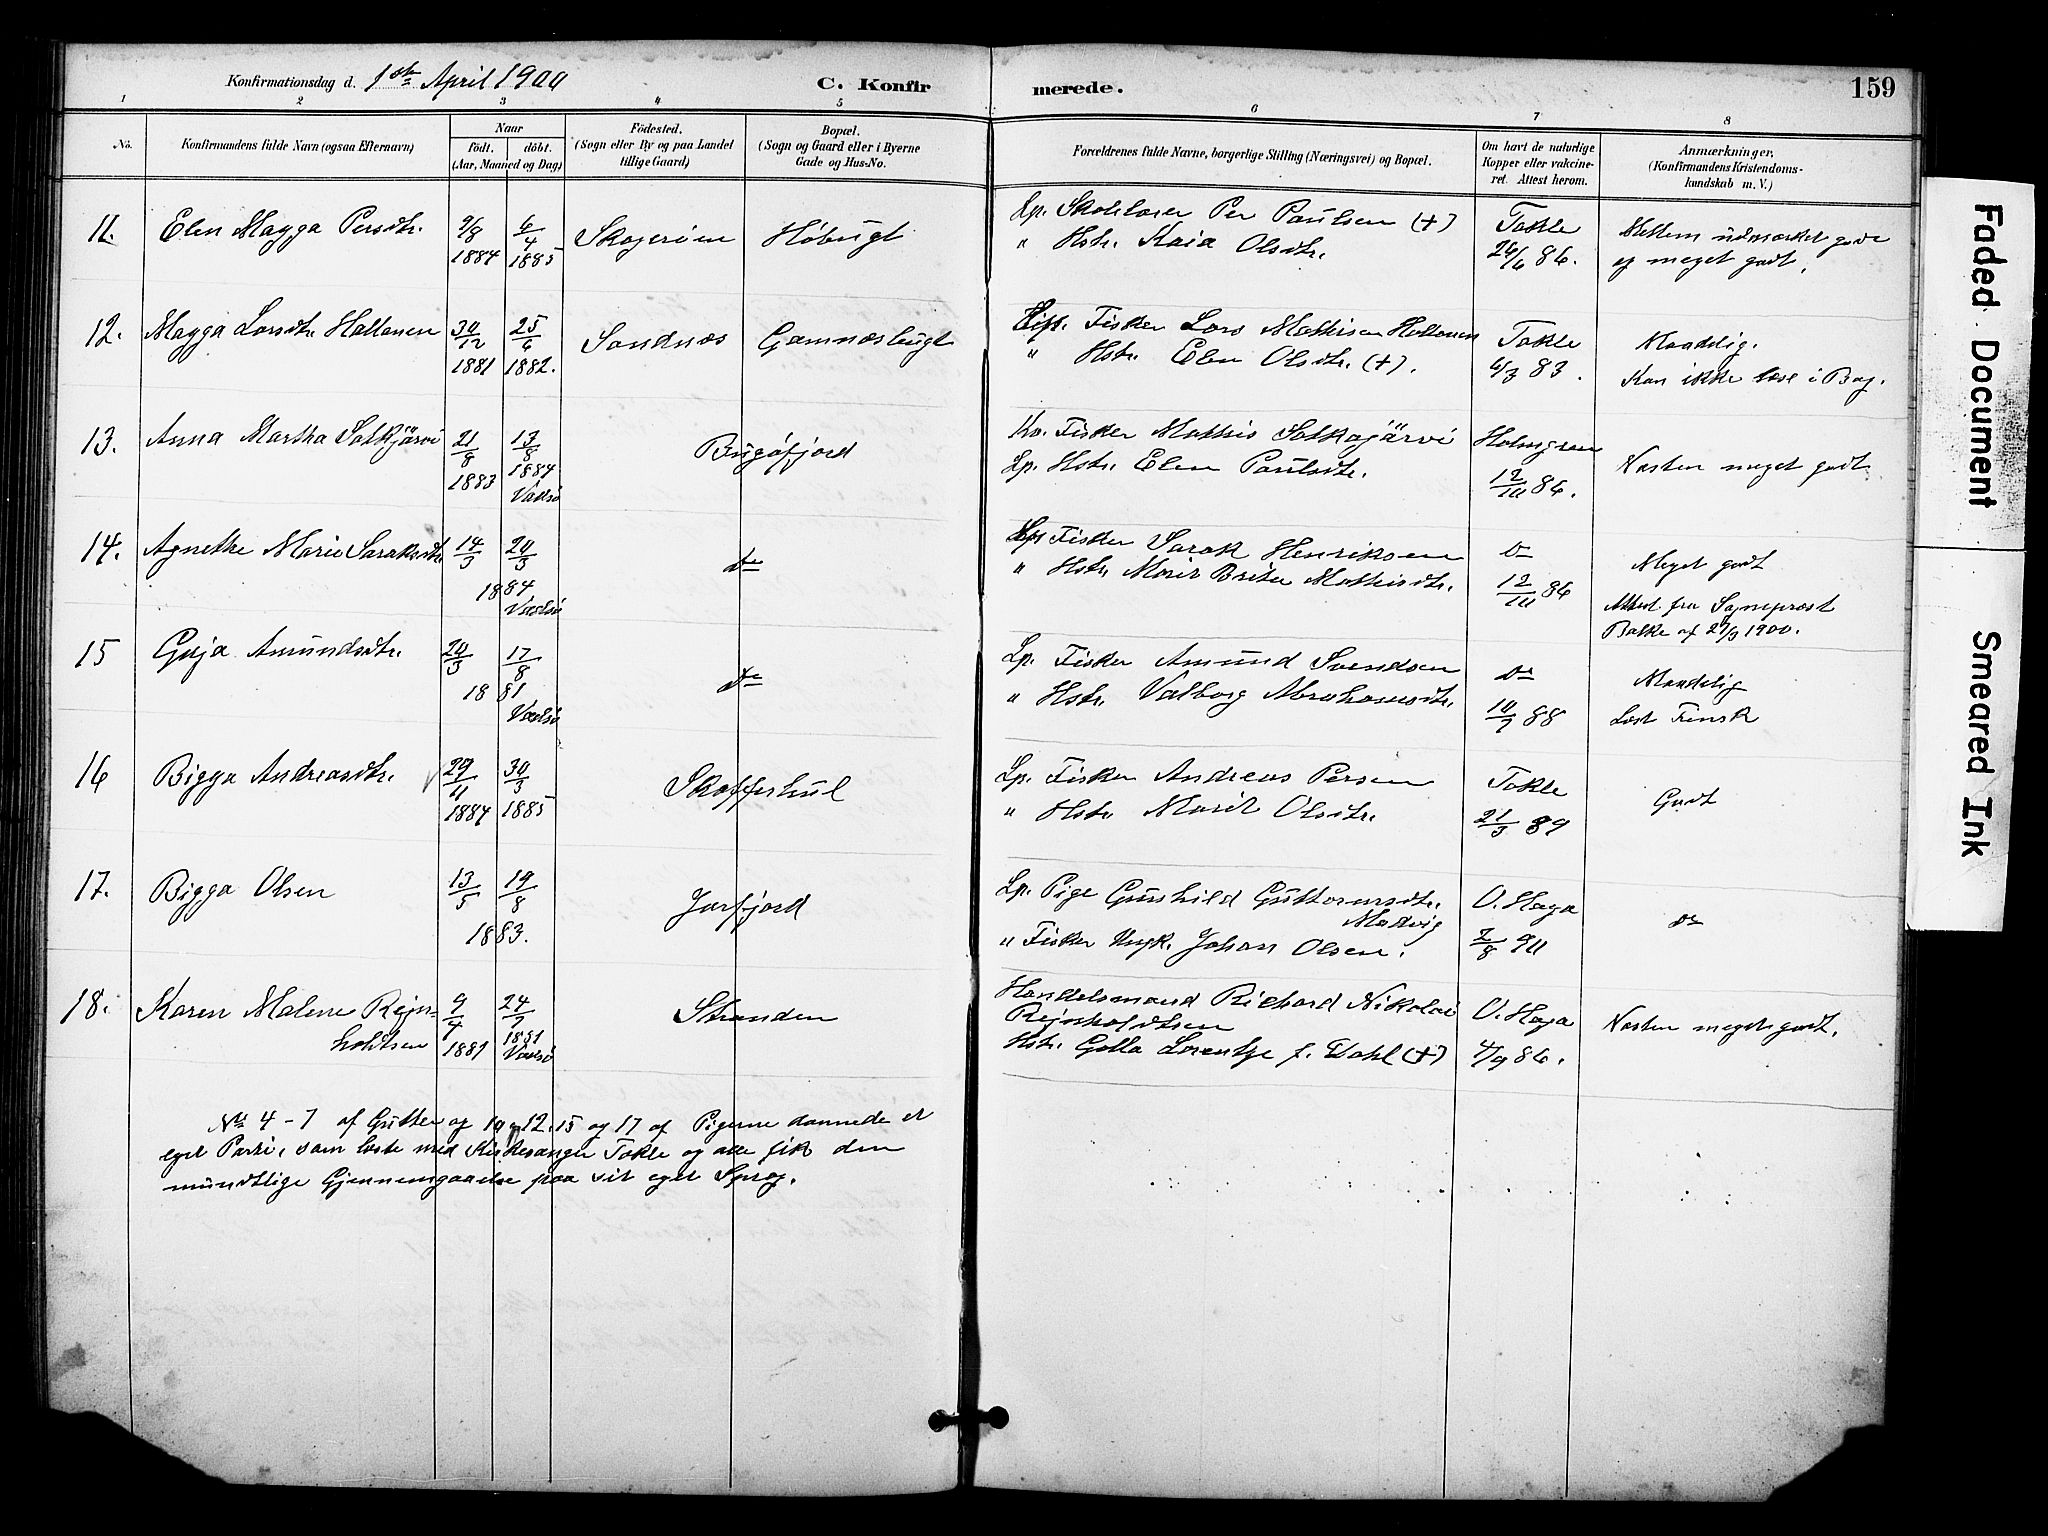 Konfirmationsdag d. 1ste April 1900
C. Konfirmerede.
159
1 2 3 4 5 6 7 8
No.
Konfirmandens fulde Navn (ogsaa Efternavn)
Naar
født. døbt.
(Aar, Maaned og Dag)
Födested.
(Sogn eller By og paa Landet
tillige Gaard)
Bopæl.
(Sogn og Gaard eller i Byerne
Gade og Hus-No.
Forældrenes fulde Navne, borgerlige Stilling (Næringsvei) og Bopæl.
Om havt de naturlige
Kopper eller vakcine-
ret. Attest herom.
Anmærkninger.
(Konfirmandens Kristendoms-
kundskab m. V.)
11. Elen Magga Persdtr. 9/8 1884 6/4 1885 Skogerøen Høbugt
Lp. Skolelærer Per Paulsen (+)
" Hstr. Kaia Olsdtr.
Takle 26/6 86.
Mellem udmærket godt
og meget godt.
12. Magga Larsdtr. Hallonen 30/12 1881 25/6 1882. Sandnæs Gamnæsbugt
Fisker Lars Mathisen Hallonen
" Hstr. Elen Olsdtr. (+).
Takle 6/3 83.
Maadelig.
Kan ikke læse i Bog.
13. Anna Martha Salkjärvi 21/8 1883 13/8 1884 Vadsø Bugøfjord
Kv. Fisker Mathis Salkojärvi
Lp. Hstr. Elen Paulsdtr.
Holmgren 12/10 86.
Næsten meget godt
14. Agnethe Marie Saraksdtr. 14/3 20/3 1884 Vadsø do
Lp. Fisker Sarak Henriksen
" Hstr. Marit Brita Mathisdtr.
do 12/10 86
Meget godt
Attest fra Sognepræst
Balke af 29/3 1900.
15 Guja Amundsdtr. 20/3 17/8 1881 Vadsø do
Lp. Fisker Amund Svendsen
" Hstr. Valborg Abrahamsdtr.
do 10/7 88
Maadelig
Læst Finsk
16 Bigga Andreasdtr. 29/11 1884 30/3 1885 Skafferhul
Lp. Fisker Andreas Persen
" Hstr. Marit Olsdtr.
Takle 21/3 89
Godt
17. Bigga Olsen 13/5 19/8 1883. Jarfjord
Lp. Pige Gunhild Guttormsdtr.
Madvig
" Fisker Ungk. Johan Olsen.
O. Haga 2/8 90
do
18. Karen Malene Rejn-
holdtsen 9/4 1881 24/7 1881 Vadsø Stranden
Handelsmand Richard Nikolai
Rejnholdtsen
Hstr. Golla Lorentse f. Dahl (+)
O. Haga 4/9 86.
Næsten meget godt.
No 4 - 7 af Gutter og 10, 12, 15 og 17 af Pigerne dannede et
eget Parti, som læste med Kirkesanger Takle og alle fik den
mundtlige Gjennemgaaelse paa sit eget Sprog.
Faded Document
Smeared Ink